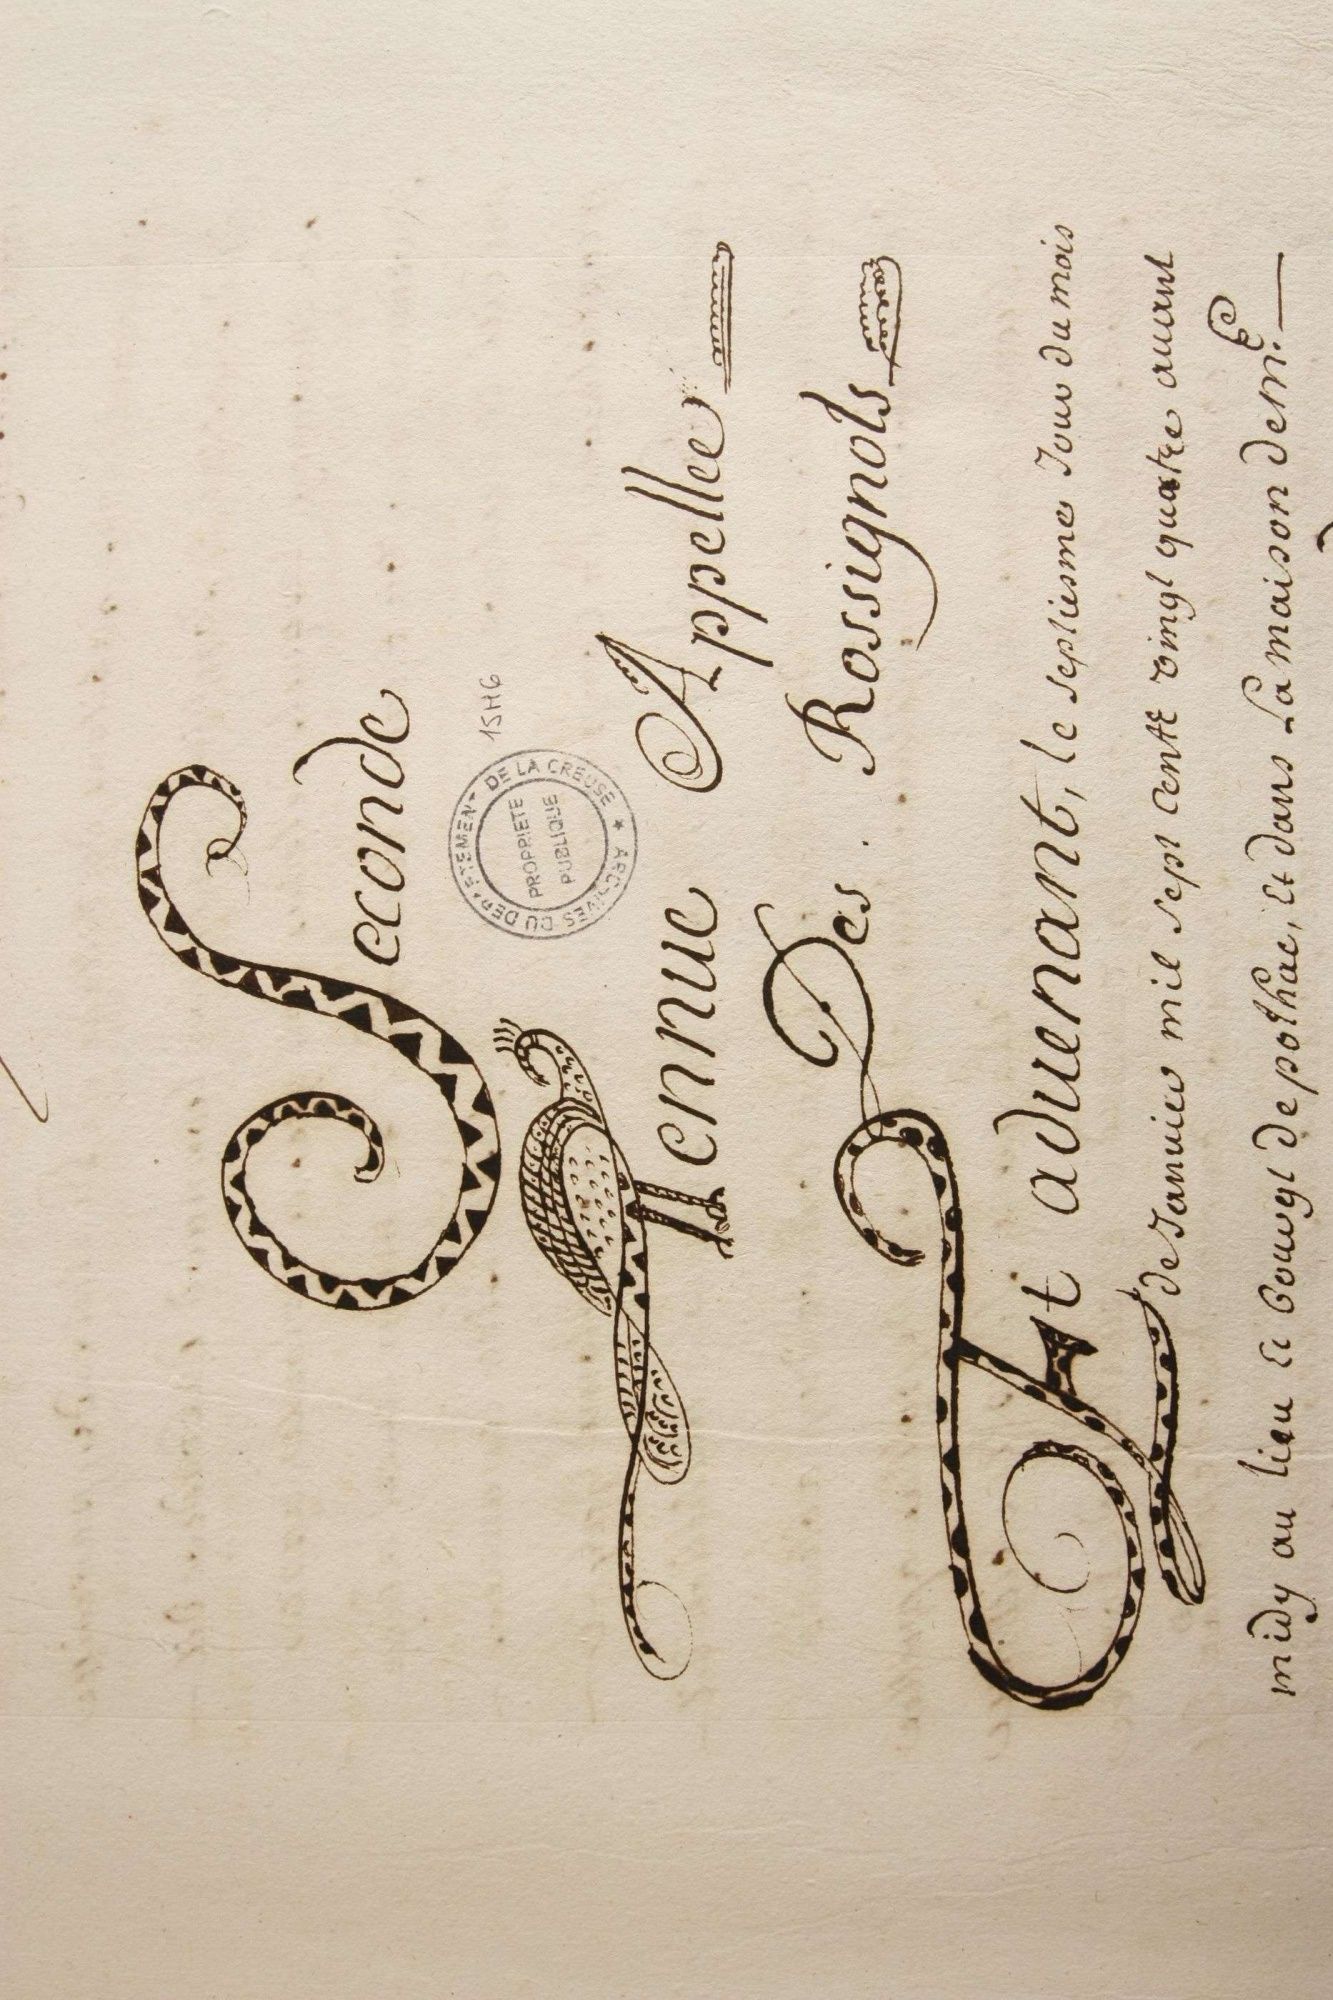 Seconde
15HG
ARCHIVES DU DEPARTEMENT DE LA CREUSE ★
PROPRIETE
PUBLIQUE
Tennue Appellee
Des Rossignols
Et aduenant, le septiesme Jour du mois
de Januier mil sept centt vingt quattre auant
midy au lieu et bourgt de pothac, Et dans La maison de m.e